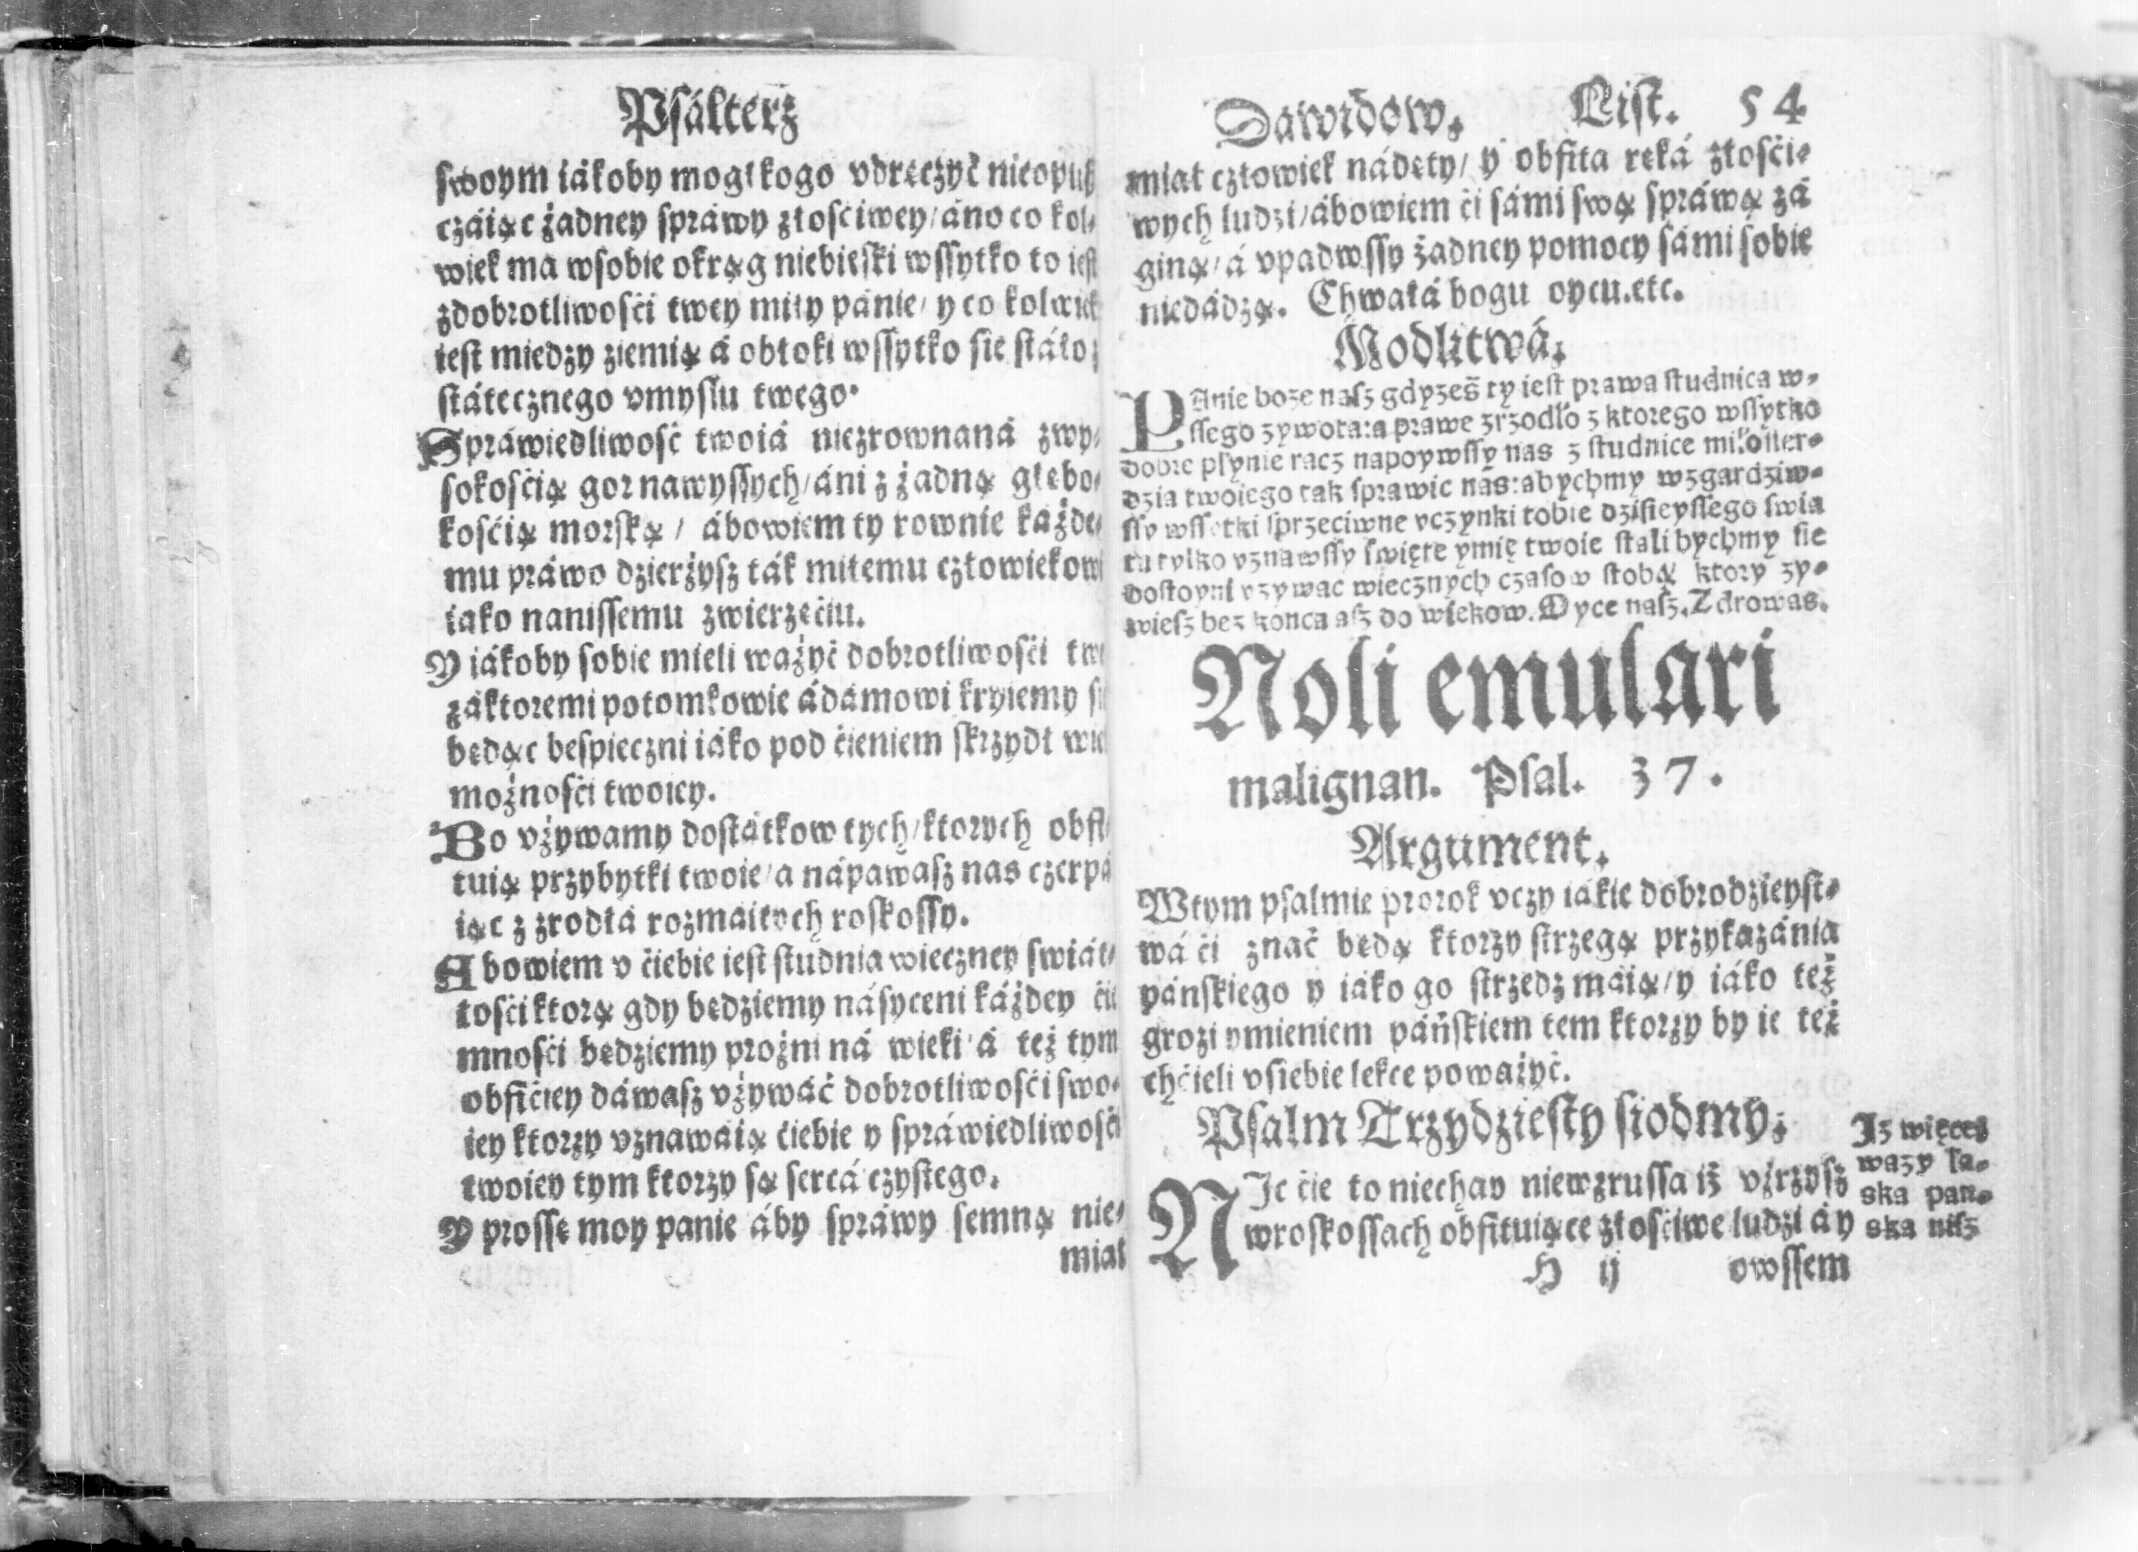 Psálterz
swoym iákoby mogł kogo vdręczyć nieopusz
czáiąc żadney spráwy złosciwey/ áno co kol-
wiek ma wsobie okrąg niebieski wssytko to iest
zdobrotliwosći twey miły pánie/ y co kolwiek
iest miedzy ziemią á obłoki wssytko sie stáło z
státecznego vmysłu twego.
Spráwiedliwosć twoiá niezrownaná zwy-
sokosćią gor nawyssych/ áni z żadną głębo-
kosćią morską/ ábowiem ty rownie káżde-
mu práwo dzierżysz ták miłemu człowiekowi
iako nanissemu zwierzęćiu.
Y iákoby sobie mieli ważyć dobrotliwosći twe
záktoremi potomkowie ádámowi kryiemy sie
będąc bespieczni iáko pod ćieniem skrzydł wie
możnosći twoiey.
Bo vżywamy dostátkow tych/ ktorych obfi-
tuią przybytki twoie/ a nápawasz nas czerpá
iąc z zrodłá rozmáitych roskossy.
Abowiem v ćiebie iest studnia wieczney swiát-
łosći ktorą gdy będziemy násyceni káżdey ćie
mnosći będziemy prożni ná wieki/ á też tym
obfićiey dáwasz vżywáć dobrotliwosći swo-
iey ktorzy vznawáią ćiebie y spráwiedliwosći
twoiey tym ktorzy są sercá czystego.
Y prossę moy panie áby spráwy semną nie-
miał
Dawidow. List. 54
miał człowiek nádęty/ y obfita ręká złosći-
wych ludzi/ ábowiem ći sámi swą spráwą zá
giną/ á vpadwssy żadney pomocy sámi sobie
niedádzą. Chwałá bogu oycu.etc.
Modlitwá.
PAnie boze nasz gdyześ ty iest prawa studnica w-
ssego zywota:a prawe zrzodło z ktorego wssytko
dobre płynie racz napoywssy nas z studnice miłosier-
dzia twoiego tak sprawic nas:abychmy wzgardziw-
ssy wssetki sprzeciwne vczynki tobie dzisieyssego swia
ta tylko vznawssy święte ymię twoie stali bychmy sie
dostoyni vzywac wiecznych czasow stobą ktory zy-
wiesz bez konca asz do wiekow. Oyce nasz. Zdrowas.
Noli emulari
malignan. Psal. 37.
Argument.
Wtym psalmie prorok vczy iákie dobrodzieyst-
wá ći znać będą ktorzy strzegą przykazánia
páńskiego y iáko go strzedz máią/ y iáko też
grozi ymieniem páńskiem tem ktorzy by ie też
chćieli vsiebie lekce poważyć.
Psalm Trzydziesty siodmy.
NIc ćie to niechay niewzrussa iż vźrzysz
wroskossach obfituiące złosćiwe ludzi á y
Iz więcei
wazy ła-
ska pan-
ska nisz
H ij owssem